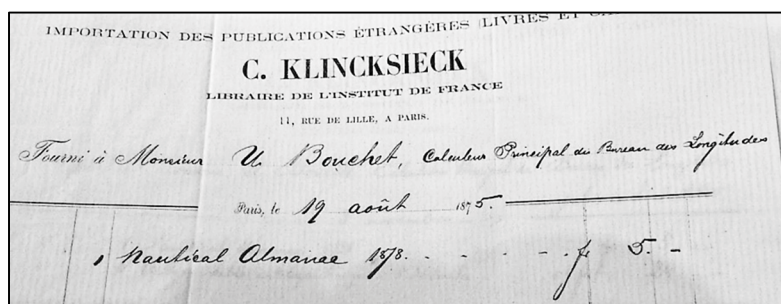 IMPORTATION DES PUBLICATIONS ÉTRANGÈRES (LIVRES ET
C. KLINCKSIECK
LIBRAIRE DE L'INSTITUT DE FRANCE
11, RUE DE LILLE, A PARIS.
Fourni à Monsieur U Bouchet, Calculateur Principal du Bureau des Longitudes
Paris, le 19 août 1875.
1 Nautical Almanac 1878. - - - - - f 5. -